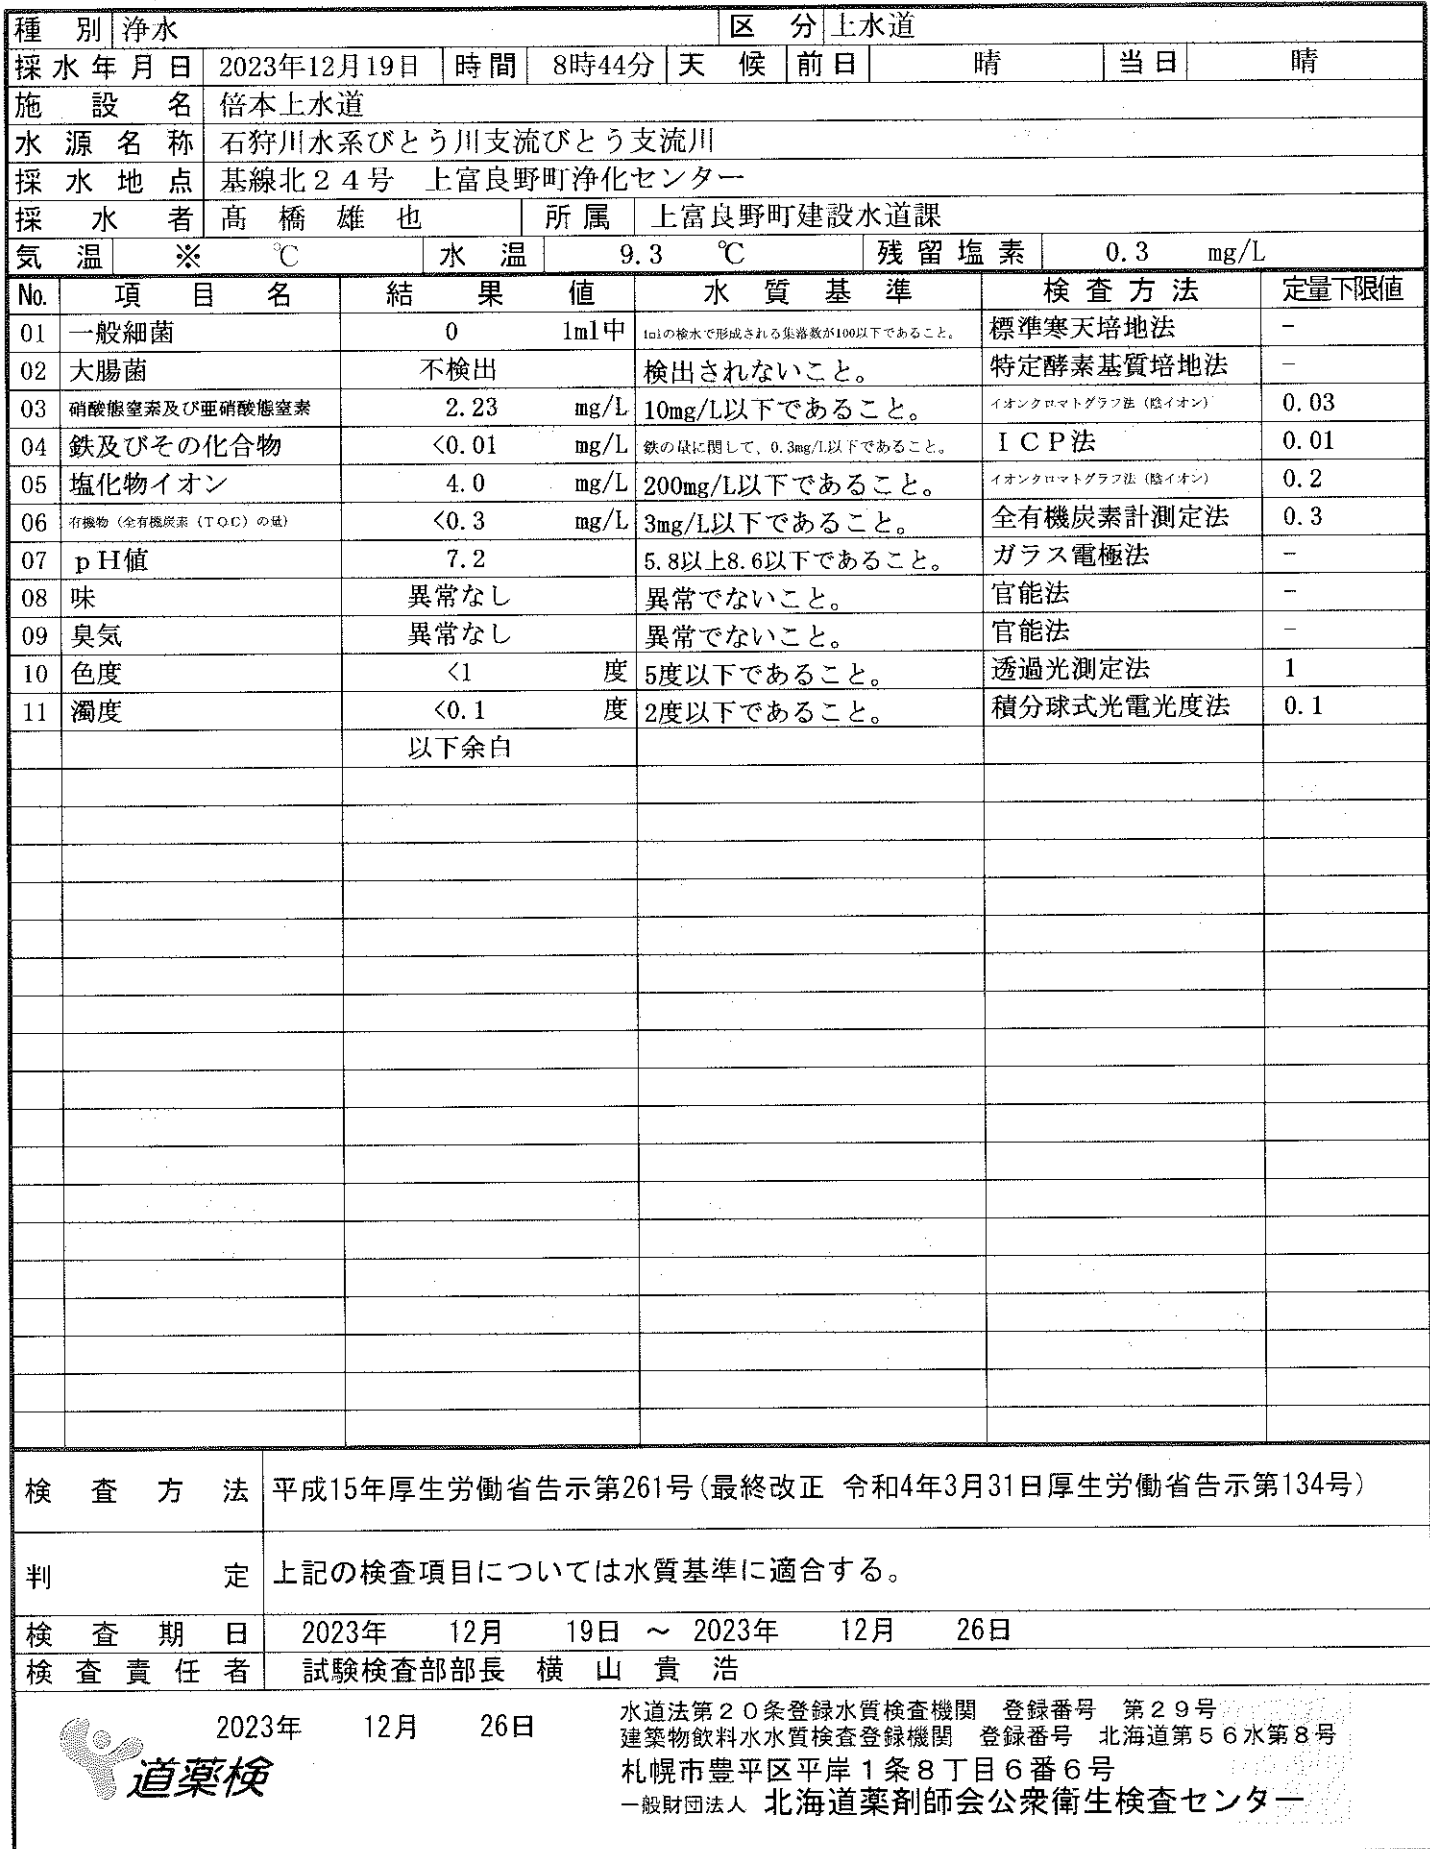 種別 浄水 区分 上水道
採水年月日 2023年12月19日 時間 8時44分 天候 前日 晴 当日 晴
施設名 倍本上水道
水源名称 石狩川水系びとう川支流びとう支流川
採水地点 基線北24号 上富良野町浄化センター
採水者 髙橋雄也 所属 上富良野町建設水道課
気温 ※ ℃ 水温 9.3 ℃ 残留塩素 0.3 mg/L
No. 項目名 結果値 水質基準 検査方法 定量下限値
01 一般細菌 0 1ml中 1mlの検水で形成される集落数が100以下であること。 標準寒天培地法 -
02 大腸菌 不検出 検出されないこと。 特定酵素基質培地法 -
03 硝酸態窒素及び亜硝酸態窒素 2.23 mg/L 10mg/L以下であること。 イオンクロマトグラフ法(陰イオン) 0.03
04 鉄及びその化合物 <0.01 mg/L 鉄の量に関して、0.3mg/L以下であること。 ICP法 0.01
05 塩化物イオン 4.0 mg/L 200mg/L以下であること。 イオンクロマトグラフ法(陰イオン) 0.2
06 有機物(全有機炭素(TOC)の量) <0.3 mg/L 3mg/L以下であること。 全有機炭素計測定法 0.3
07 pH値 7.2 5.8以上8.6以下であること。 ガラス電極法 -
08 味 異常なし 異常でないこと。 官能法 -
09 臭気 異常なし 異常でないこと。 官能法 -
10 色度 <1 度 5度以下であること。 透過光測定法 1
11 濁度 <0.1 度 2度以下であること。 積分球式光電光度法 0.1
以下余白
検査方法 平成15年厚生労働省告示第261号(最終改正 令和4年3月31日厚生労働省告示第134号)
判定 上記の検査項目については水質基準に適合する。
検査期日 2023年 12月 19日 ~ 2023年 12月 26日
検査責任者 試験検査部部長 横山貴浩
2023年 12月 26日
道薬検
水道法第20条登録水質検査機関 登録番号 第29号
建築物飲料水水質検査登録機関 登録番号 北海道第56水第8号
札幌市豊平区平岸1条8丁目6番6号
一般財団法人 北海道薬剤師会公衆衛生検査センター